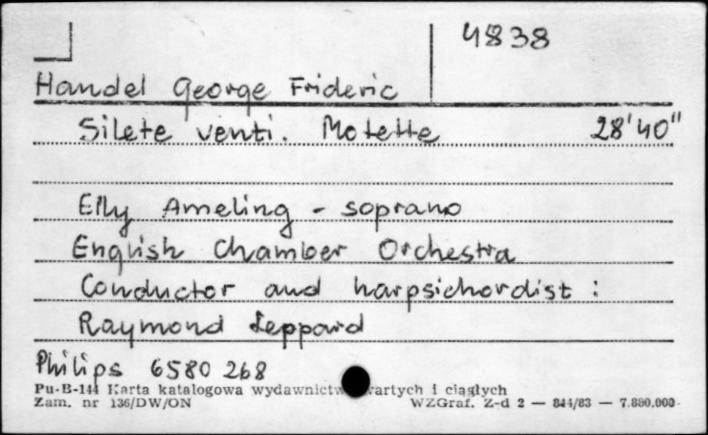 4838
Handel George Frideric
Silete venti. Motette 28'40"
Elly Ameling - soprano
English Chamber Orchestra
Conductor and harpsichordist :
Raymond Leppard
Philips 6580 268
Pu-B-144 Karta katalogowa wydawnictw wartych i ciągłych
Zam. nr 136/DW/ON WZGraf. Z-d 2 — 844/83 — 7.880.000